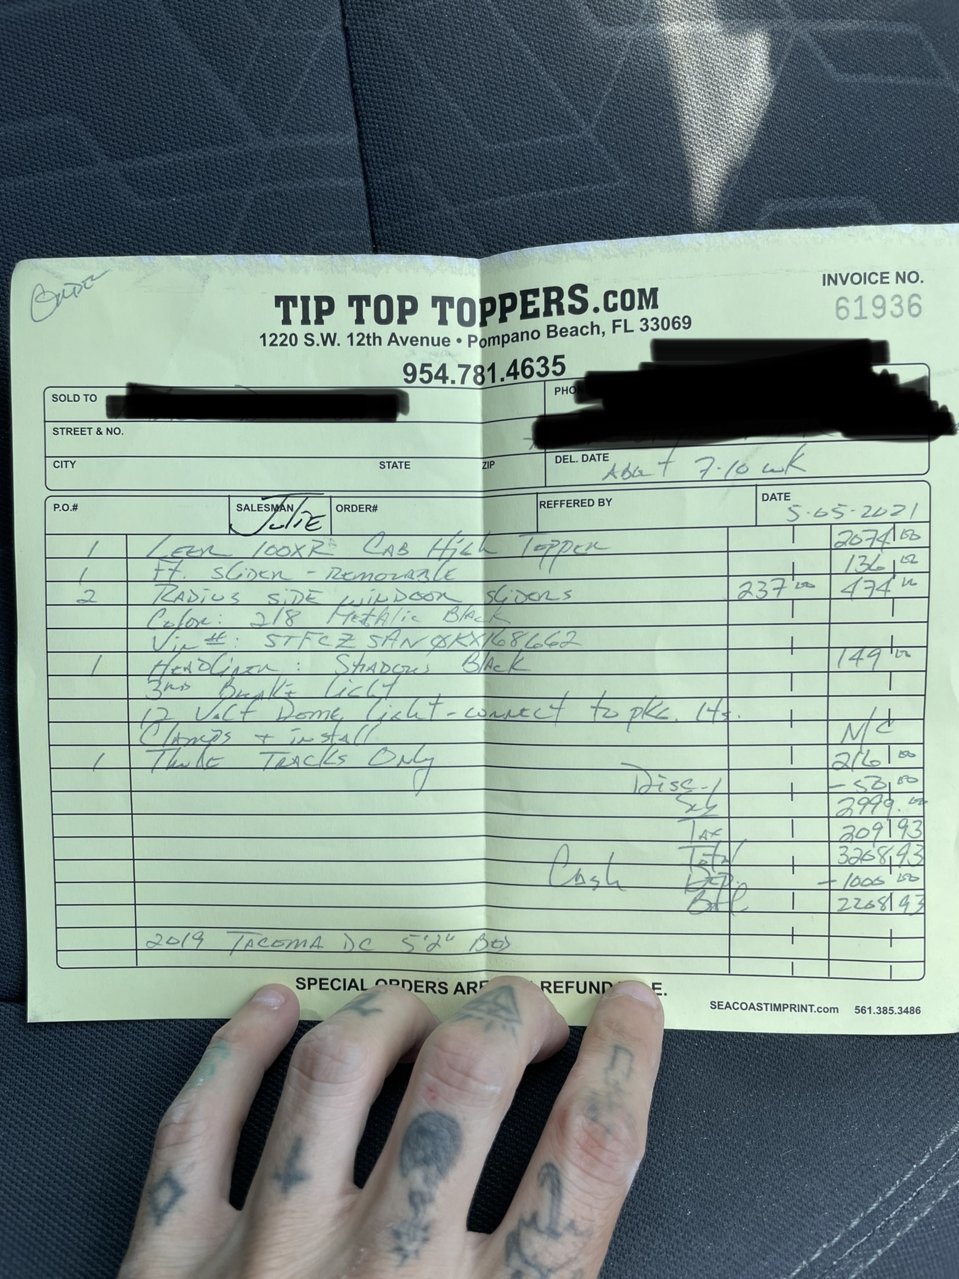 Order
TIP TOP TOPPERS.COM
INVOICE NO.
61936
1220 S.W. 12th Avenue • Pompano Beach, FL 33069
954.781.4635
SOLD TO
PHO
STREET & NO.
CITY STATE ZIP
DEL. DATE About 7-10 wk
P.O.# SALESMAN Julie ORDER# REFFERED BY DATE 5-05-2021
1 LEER 100XR Cab High Topper 2074 00
1 Ft. Slider - Removable 136 00
2 Radius Side Windoor Sliders 237 00 474 00
Color: 218 Metalic Black
Vin #: 5TFCZ5AN0KX168662
1 Headliner: Shadows Black 149 00
3rd Brake Light
12 Volt Dome Light - connect to pkg. Lts.
Clamps + install N/C
1 Thule Tracks Only 216 00
Disc. -50.00
2999.00
Tax 209 93
Total 3208 93
Cash Dep. -1000 00
Bal 2208 93
2019 Tacoma DC 5'2" Bed
SPECIAL ORDERS ARE REFUND E.
SEACOASTIMPRINT.com 561.385.3486